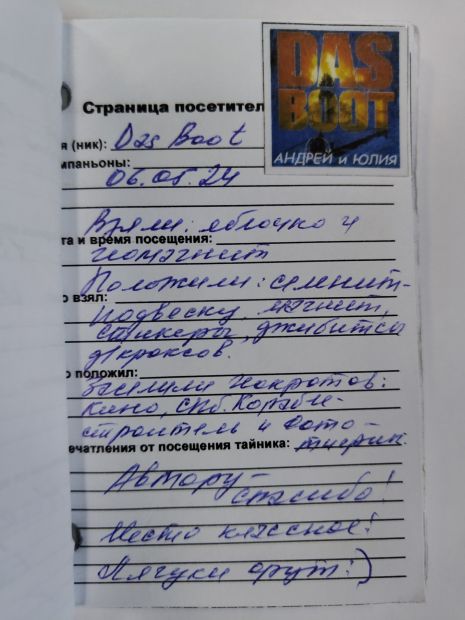 DAS
BOOT
АНДРЕЙ и ЮЛИЯ
Страница посетител
я (ник): Das Boot
мпаньоны:
06.05.24
Взяли: яблочко и
та и время посещения:
магнит
Положили: 
о взял:
подвеску, магнит,
стикеры, джибитсы
д/кроксов.
о положил:
Кино, СПб. Корабле-
строитель и Фото-
ечатления от посещения тайника:
Автору-
спасибо!
Место классное!
Лягухи орут :)